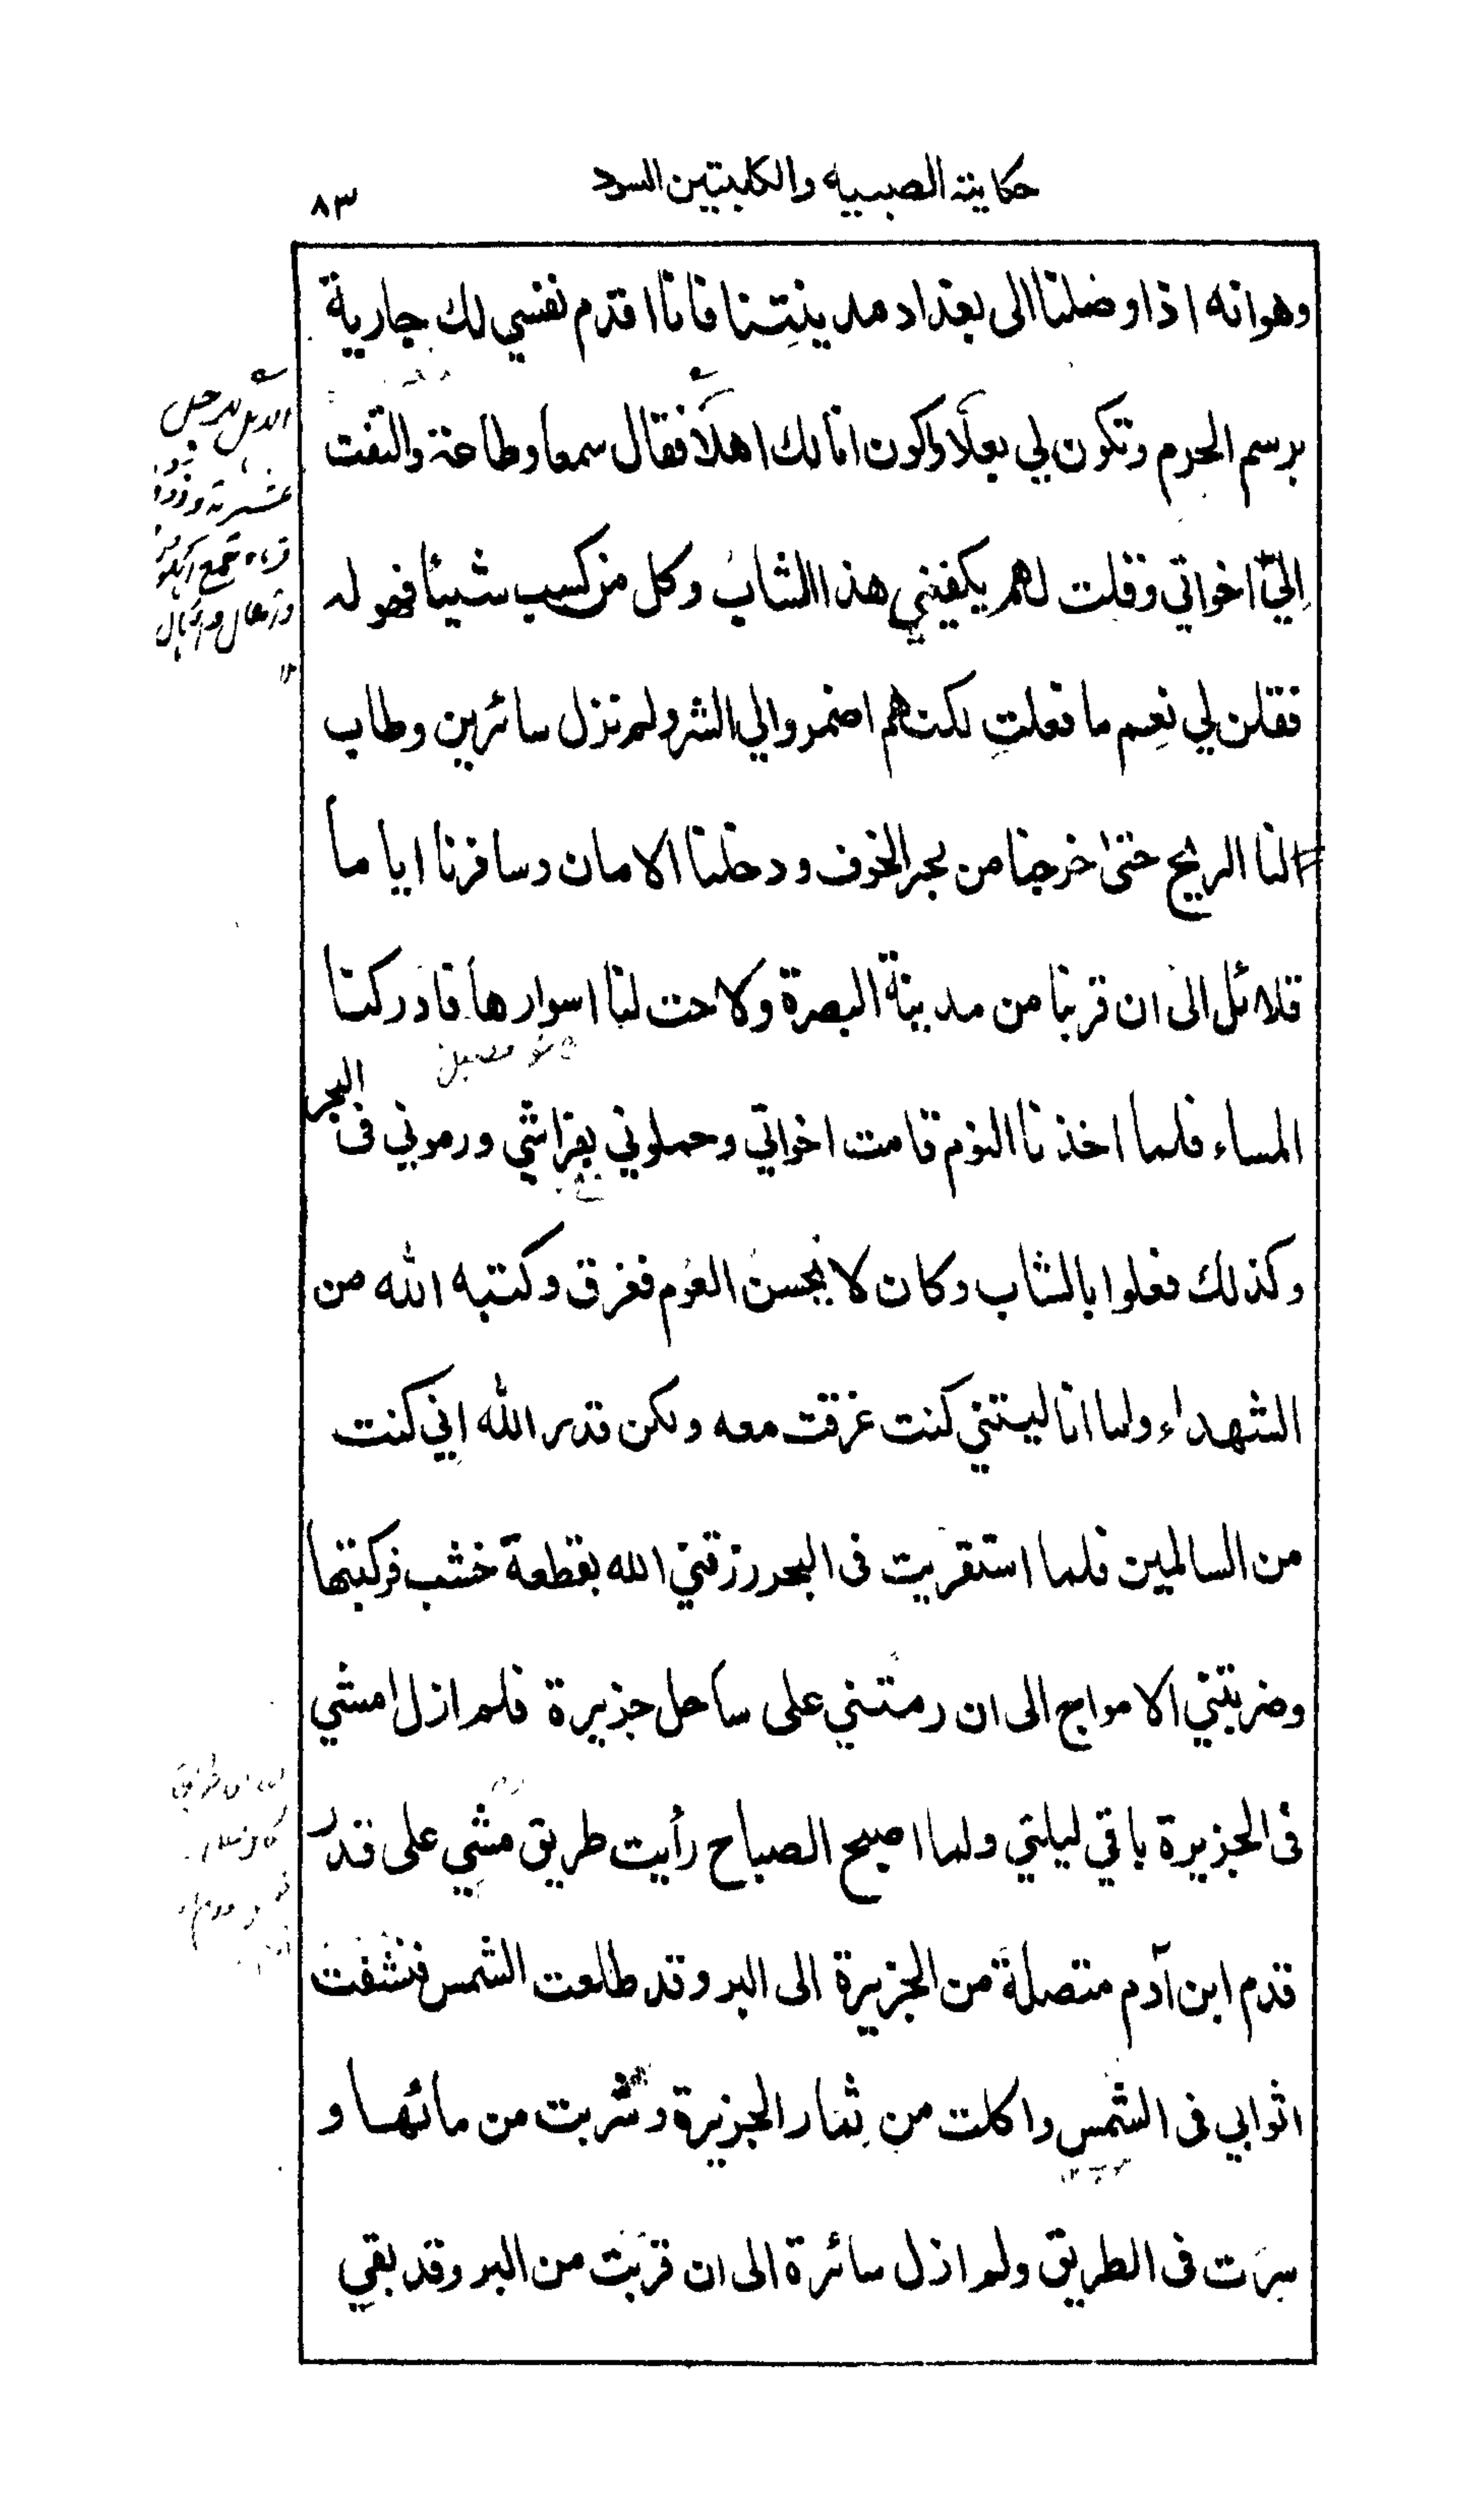 حكاية الصبيه والكلبتين السود
٨٣
وهو انه اذا وصلنا الى بغداد مدينتنا فانا اقدم نفسي لك جارية
برسم الحرم وتكون لي بعلًا واكون انا لك اهلًا فقال سمعا وطاعة والتفت
إليّ اخواتي وقلت لهم يكفيني هذا الشاب وكل من كسب شيئا فهو له
فقلن لي نِعم ما فعلتِ لكن هم اضمروا لي الشر ولم نزل سائرين وطاب
لنا الريح حتى اخرجنا من بحر الخوف ودخلنا الامان وسافرنا اياما
قلائل الى ان قربنا من مدينة البصرة ولاحت لنا اسوارها فادركنا
المساء فلما اخذنا النوم قامت اخواتي وحملوني بفراشي ورموني فى البحر
وكذلك فعلوا بالشاب وكان لا يحسن العوم فغرق وكتبه الله من
الشهداء ولما انا ليتني كنت غرقت معه ولكن قدر الله إني كنت
من السالمين فلما استقريت فى البحر رزقني الله بقطعة خشب فركبتها
وضربتني الامواج الى ان رمتني على ساحل جزيرة فلم ازل امشي
فى الجزيرة باقي ليلتي ولما اصبح الصباح رأيت طريق مشي على قدر
قدم ابن آدم متصلة من الجزيرة الى البر وقد طلعت الشمس فنشفت
اثوابي فى الشمس واكلت من ثمار الجزيرة وشربت من مائها و
سرت فى الطريق ولم ازل سائرة الى ان قربت من البر وقد بقي